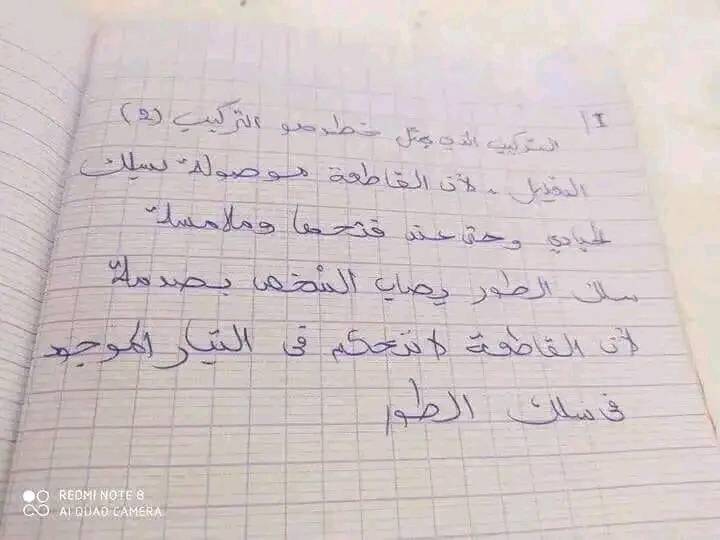 I/
التركيب الذي يمثل خطر هو التركيب (2)
التعليل، لأن القاطعة موصولة بسلك
الحيادي وحتى عند فتحها وملامسة
سلك الطور يصاب الشخص بصدمة
لأن القاطعة لا تتحكم في التيار الموجود
في سلك الطور
REDMI NOTE 8
AI QUAD CAMERA